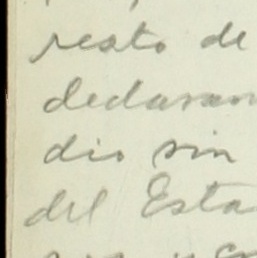 resto de
declaran
dio sin
del Esta